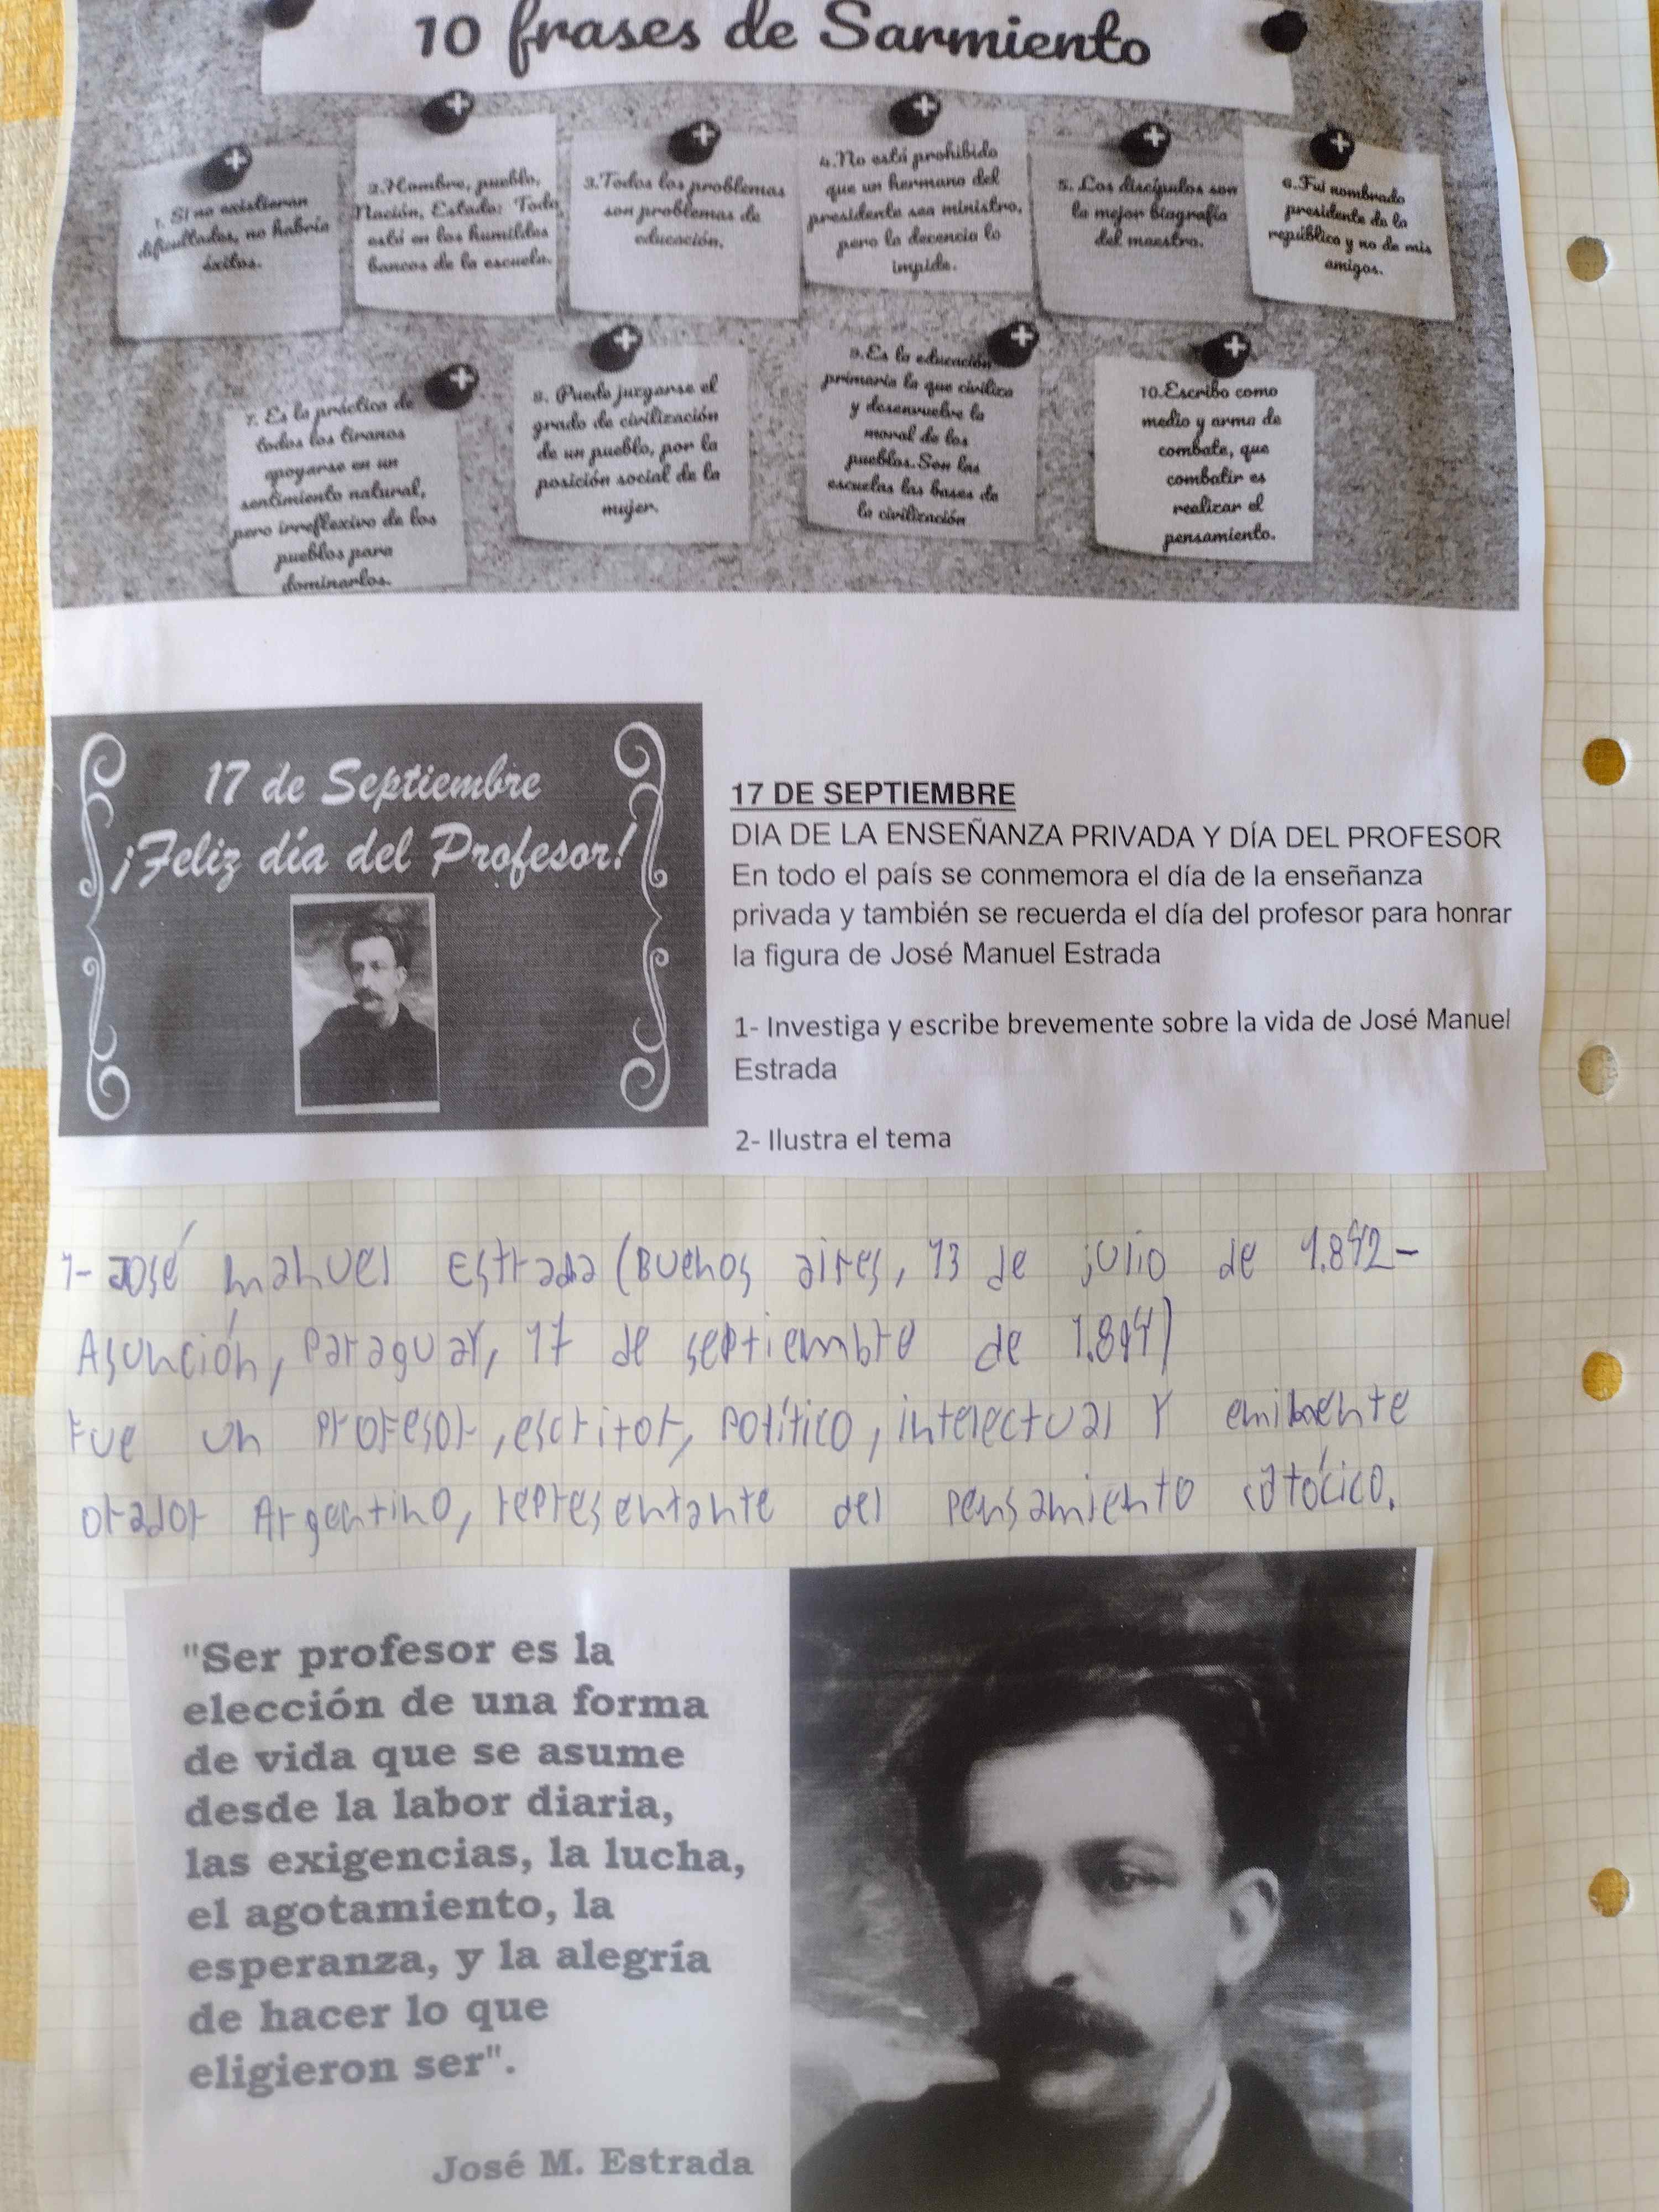 10 frases de Sarmiento
1. Si no existieran
dificultades, no habría
éxitos.
2.Hombre, pueblo,
Nación, Estado: Todo
está en los humildes
bancos de la escuela.
3.Todos los problemas
son problemas de
educación.
4.No está prohibido
que un hermano del
presidente sea ministro,
pero la decencia lo
impide.
5. Los discípulos son
la mejor biografía
del maestro.
6.Fui nombrado
presidente de la
república y no de mis
amigos.
7. Es la práctica de
todos los tiranos
apoyarse en un
sentimiento natural,
pero irreflexivo de los
pueblos para
dominarlos.
8. Puede juzgarse el
grado de civilización
de un pueblo, por la
posición social de la
mujer.
9.Es la educación
primaria la que civiliza
y desenvuelve la
moral de los
pueblos.Son las
escuelas las bases de
la civilización
10.Escribo como
medio y arma de
combate, que
combatir es
realizar el
pensamiento.
17 de Septiembre
¡Feliz día del Profesor!
17 DE SEPTIEMBRE
DIA DE LA ENSEÑANZA PRIVADA Y DÍA DEL PROFESOR
En todo el país se conmemora el día de la enseñanza
privada y también se recuerda el día del profesor para honrar
la figura de José Manuel Estrada
1- Investiga y escribe brevemente sobre la vida de José Manuel
Estrada
2- Ilustra el tema
1- José manuel Estrada (Buenos aires, 13 de julio de 1.842-
Asunción, Paraguay, 17 de septiembre de 1.894)
Fue un Profesor, escritor, Político, intelectual Y eminente
orador Argentino, representante del Pensamiento católico.
"Ser profesor es la
elección de una forma
de vida que se asume
desde la labor diaria,
las exigencias, la lucha,
el agotamiento, la
esperanza, y la alegría
de hacer lo que
eligieron ser".
José M. Estrada